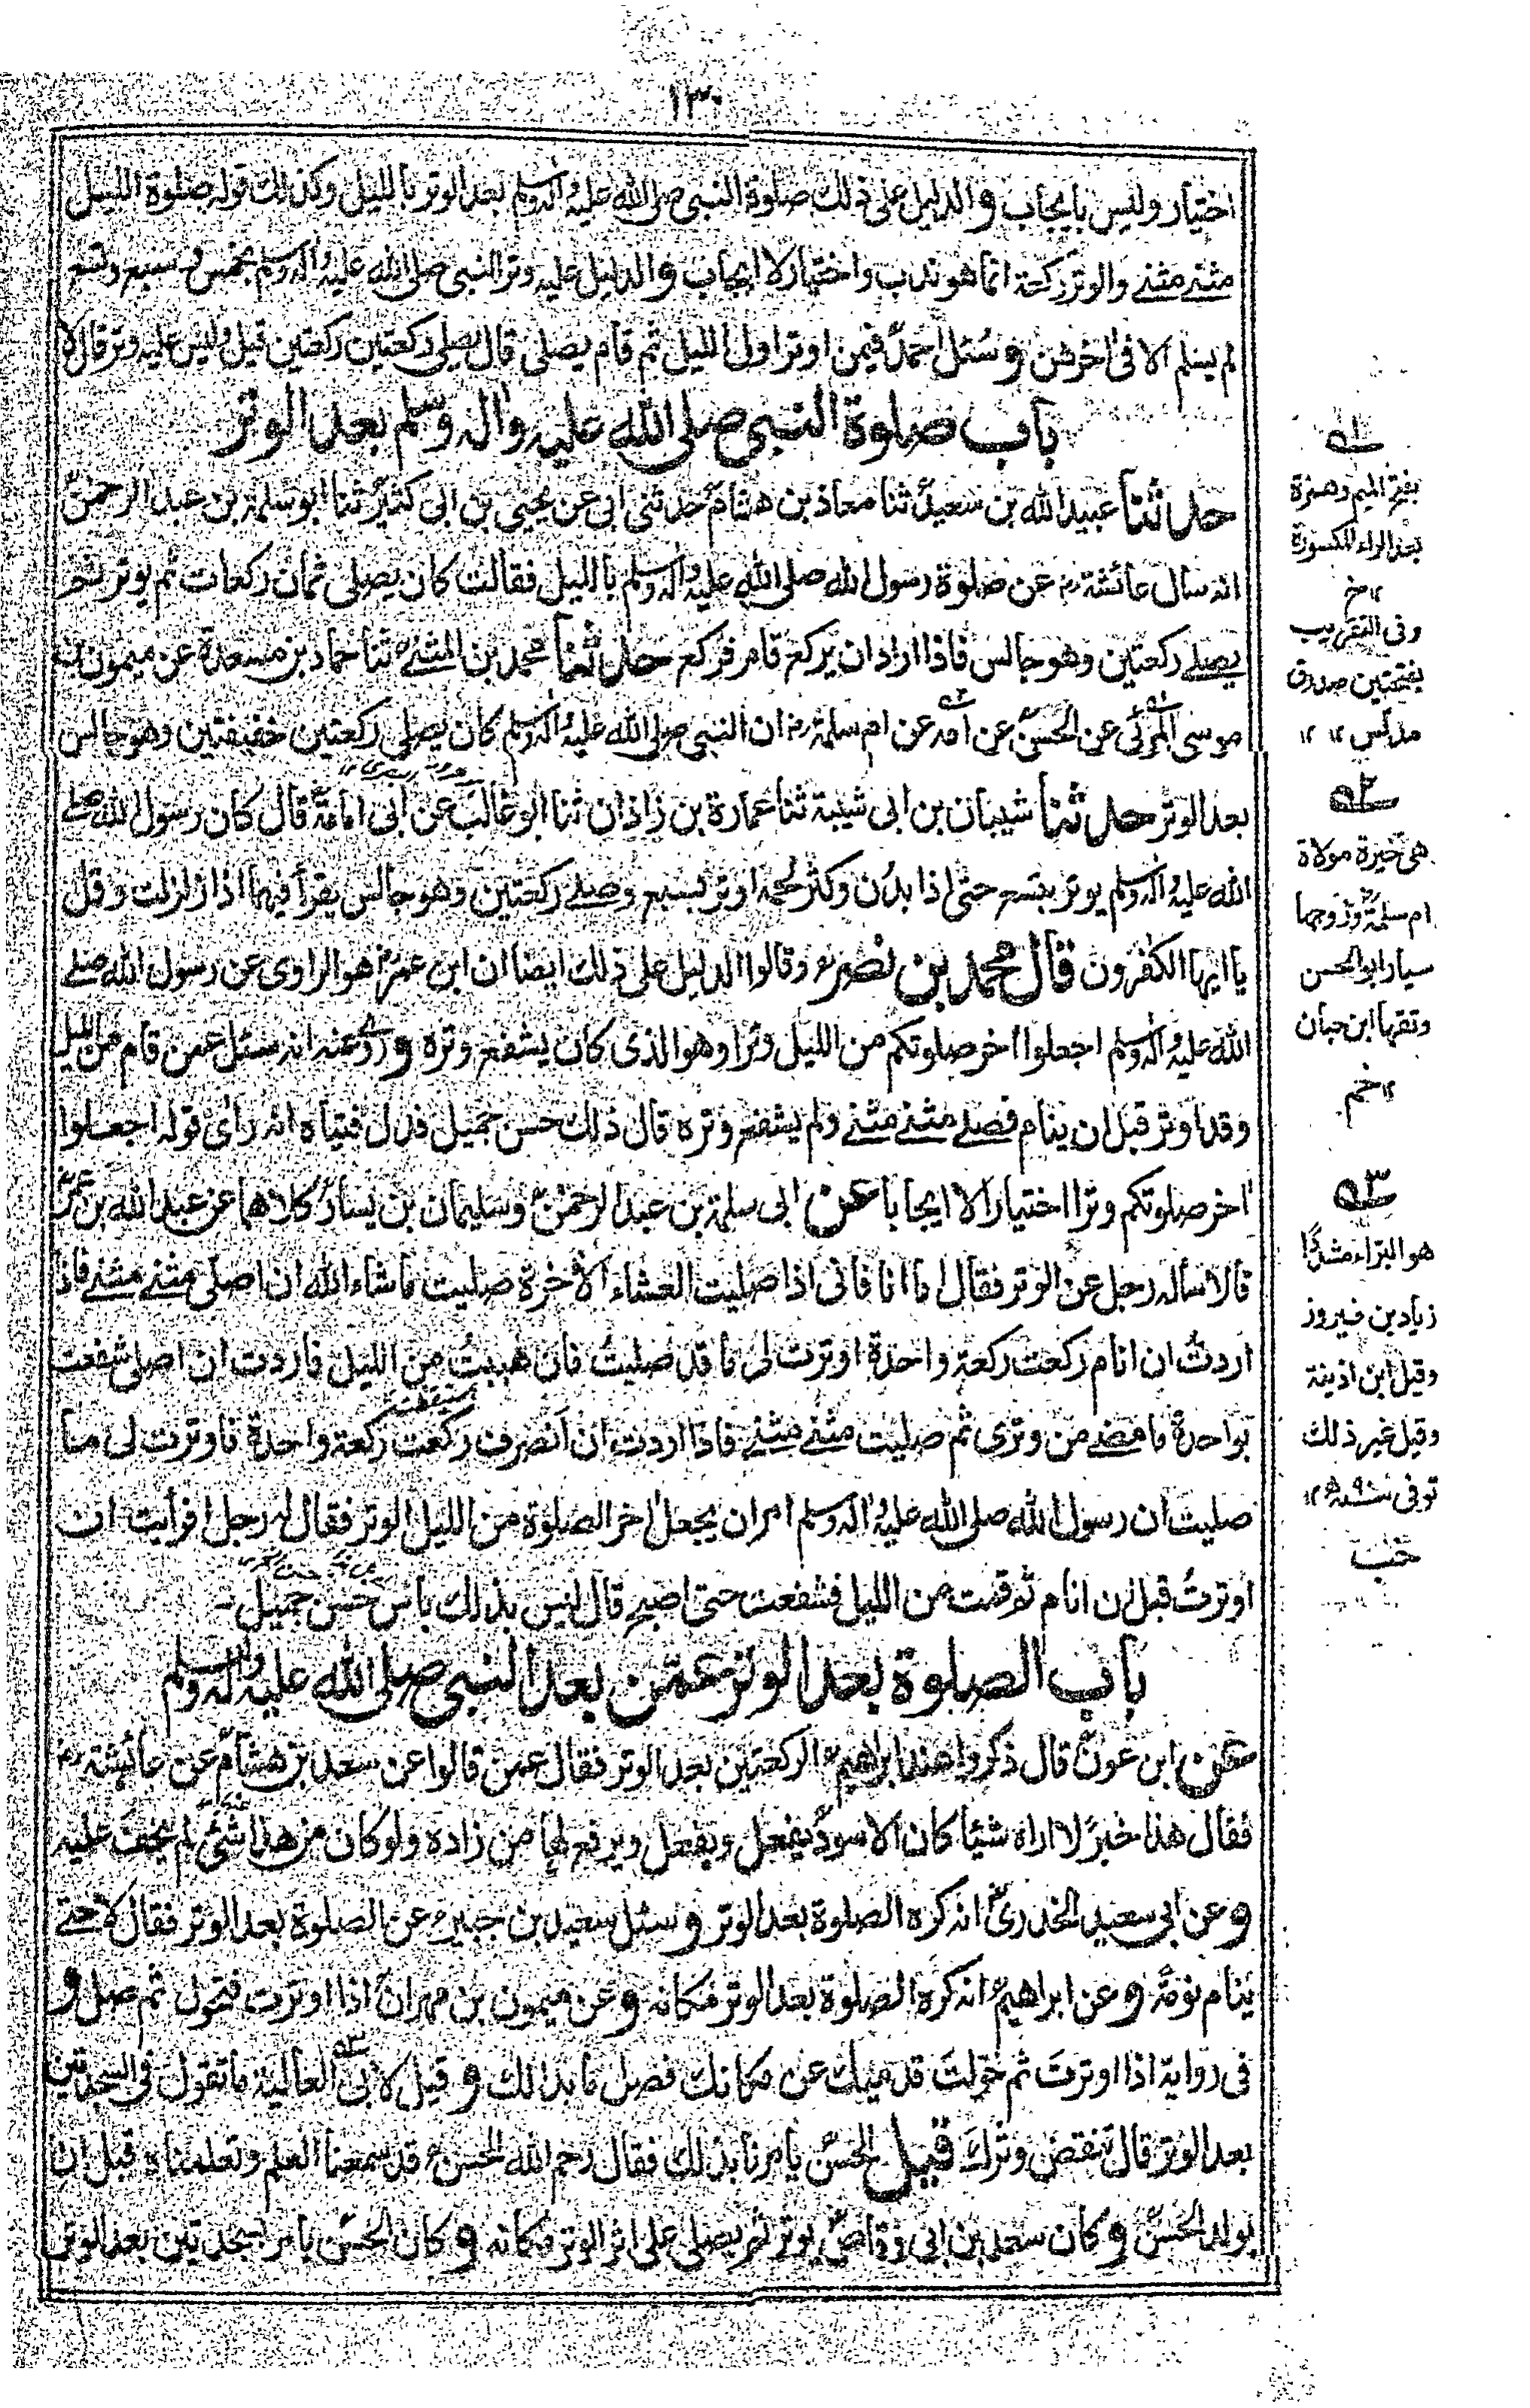 ١٣٠
اختيار وليس بايجاب والدليل على ذلك صلوة النبي صلى الله عليه واله وسلم بعد الوتر بالليل وكذلك قوله صلوة الليل
مثنے مثنے والوتر ركعة انما هو ندب واختيار لا ايجاب والدليل عليه وتر النبي صلى الله عليه واله وسلم بخمس و سبع وتسع
لم يسلم الا فى اخرهن وسئل احمد فيمن اوتر اول الليل ثم قام يصلى قال يصلى ركعتين ركعتين قيل وليس عليه وتر قال لا
باب صلوة النبى صلى الله عليه واله وسلم بعد الوتر
حدثنا عبيد الله بن سعيد ثنا معاذ بن هشام حدثنى ابى عن يحيى بن ابى كثير ثنا ابو سلمة بن عبد الرحمن
انه سأل عائشة رض عن صلوة رسول الله صلى الله عليه واله وسلم بالليل فقالت كان يصلى ثمان ركعات ثم يوتر ثم
يصلے ركعتين وهو جالس فاذا اراد ان يركع قام فركع حدثنا محمد بن المثنے ثنا حماد بن مسعدة عن ميمون بن
موسى المرئى عن الحسن عن امه عن ام سلمة رض ان النبى صلى الله عليه واله وسلم كان يصلى ركعتين خفيفتين وهو جالس
بعد الوتر حدثنا شيبان بن ابى شيبة ثنا عمارة بن زاذان ثنا ابو غالب عن ابى امامة قال كان رسول الله صلے
الله عليه واله وسلم يوتر بتسع حتى اذا بدن وكثر لحمه اوتر بسبع وصلے ركعتين وهو جالس يقرأ فيهما اذا زلزلت وقل
يا ايها الكفرون قال محمد بن نصر وقالوا الدليل على ذلك ايضا ان ابن عمر هو الراوى عن رسول الله صلے
الله عليه واله وسلم اجعلوا اخر صلوتكم من الليل وترا وهو الذى كان يشفع وتره وروى عنه انه سئل عمن قام من الليل
وقد اوتر قبل ان ينام فصلے مثنے مثنے ولم يشفع وتره قال ذلك حسن جميل فدل فتياه انه رأى قوله اجعلوا
اخر صلوتكم وترا اختيارا لا ايجابا عن ابى سلمة بن عبد الرحمن وسليمان بن يسار كلاهما عن عبد الله بن عمر
قالا سأله رجل عن الوتر فقال اما انا فانى اذا صليت العشاء الاخرة صليت ما شاء الله ان اصلى مثنے مثنے فاذا
اردت ان انام ركعت ركعة واحدة اوترت لى ما قد صليت فان هببت من الليل فاردت ان اصلى شفعت
بواحدة ما مضے من وترى ثم صليت مثنے مثنے فاذا اردت ان انصرف ركعت ركعة واحدة فاوترت لى ما
صليت ان رسول الله صلى الله عليه واله وسلم امر ان يجعل اخر الصلوة من الليل الوتر فقال له رجل افرأيت ان
اوترت قبل ان انام ثم قمت من الليل فشفعت حتى اصبح قال ليس بذلك بأس حسن جميل
باب الصلوة بعد الوتر عمن بعد النبى صلى الله عليه واله وسلم
عن ابن عون قال ذكروا عند ابراهيم الركعتين بعد الوتر فقال عمن قالوا عن سعد بن هشام عن عائشة رض
فقال هذا خبر لا اراه شيئا كان الاسود يفعل ويفعل ويرفع لها من زاده ولو كان من هذا شئ لم يخف عليه
وعن ابى سعيد الخدرى انه كره الصلوة بعد الوتر وسئل سعيد بن جبير عن الصلوة بعد الوتر فقال لا حتے
ينام نومة وعن ابراهيم انه كره الصلوة بعد الوتر مكانه وعن ميمون بن مهران اذا اوترت فتحول ثم صل و
فى رواية اذا اوترت ثم حولت قدميك عن مكانك فصل ما بدا لك وقيل لابى العالية ما تقول فى السجدتين
بعد الوتر قال تنقض وترك قيل الحسن يامرنا بذلك فقال رحم الله الحسن قد سمعنا العلم وتعلمناه قبل ان
يولد الحسن وكان سعد بن ابى وقاص يوتر ثم يصلى على اثر الوتر مكانه وكان الحسن يامر بسجدتين بعد الوتر
١ه
بفتح الميم وهمزة
بعد الراء المكسورة
١٢ خ
وفى التقريب
بفتحتين صدوق
مدلس ١٢
٢ه
هى خيرة مولاة
ام سلمة وزوجها
سيار ابو الحسن
وثقها ابن حبان
١٢
٣ه
هو البراء مشددا
زياد بن فيروز
وقيل ابن اذينة
وقيل غير ذلك
توفى سنة ٩٠ه ١٢